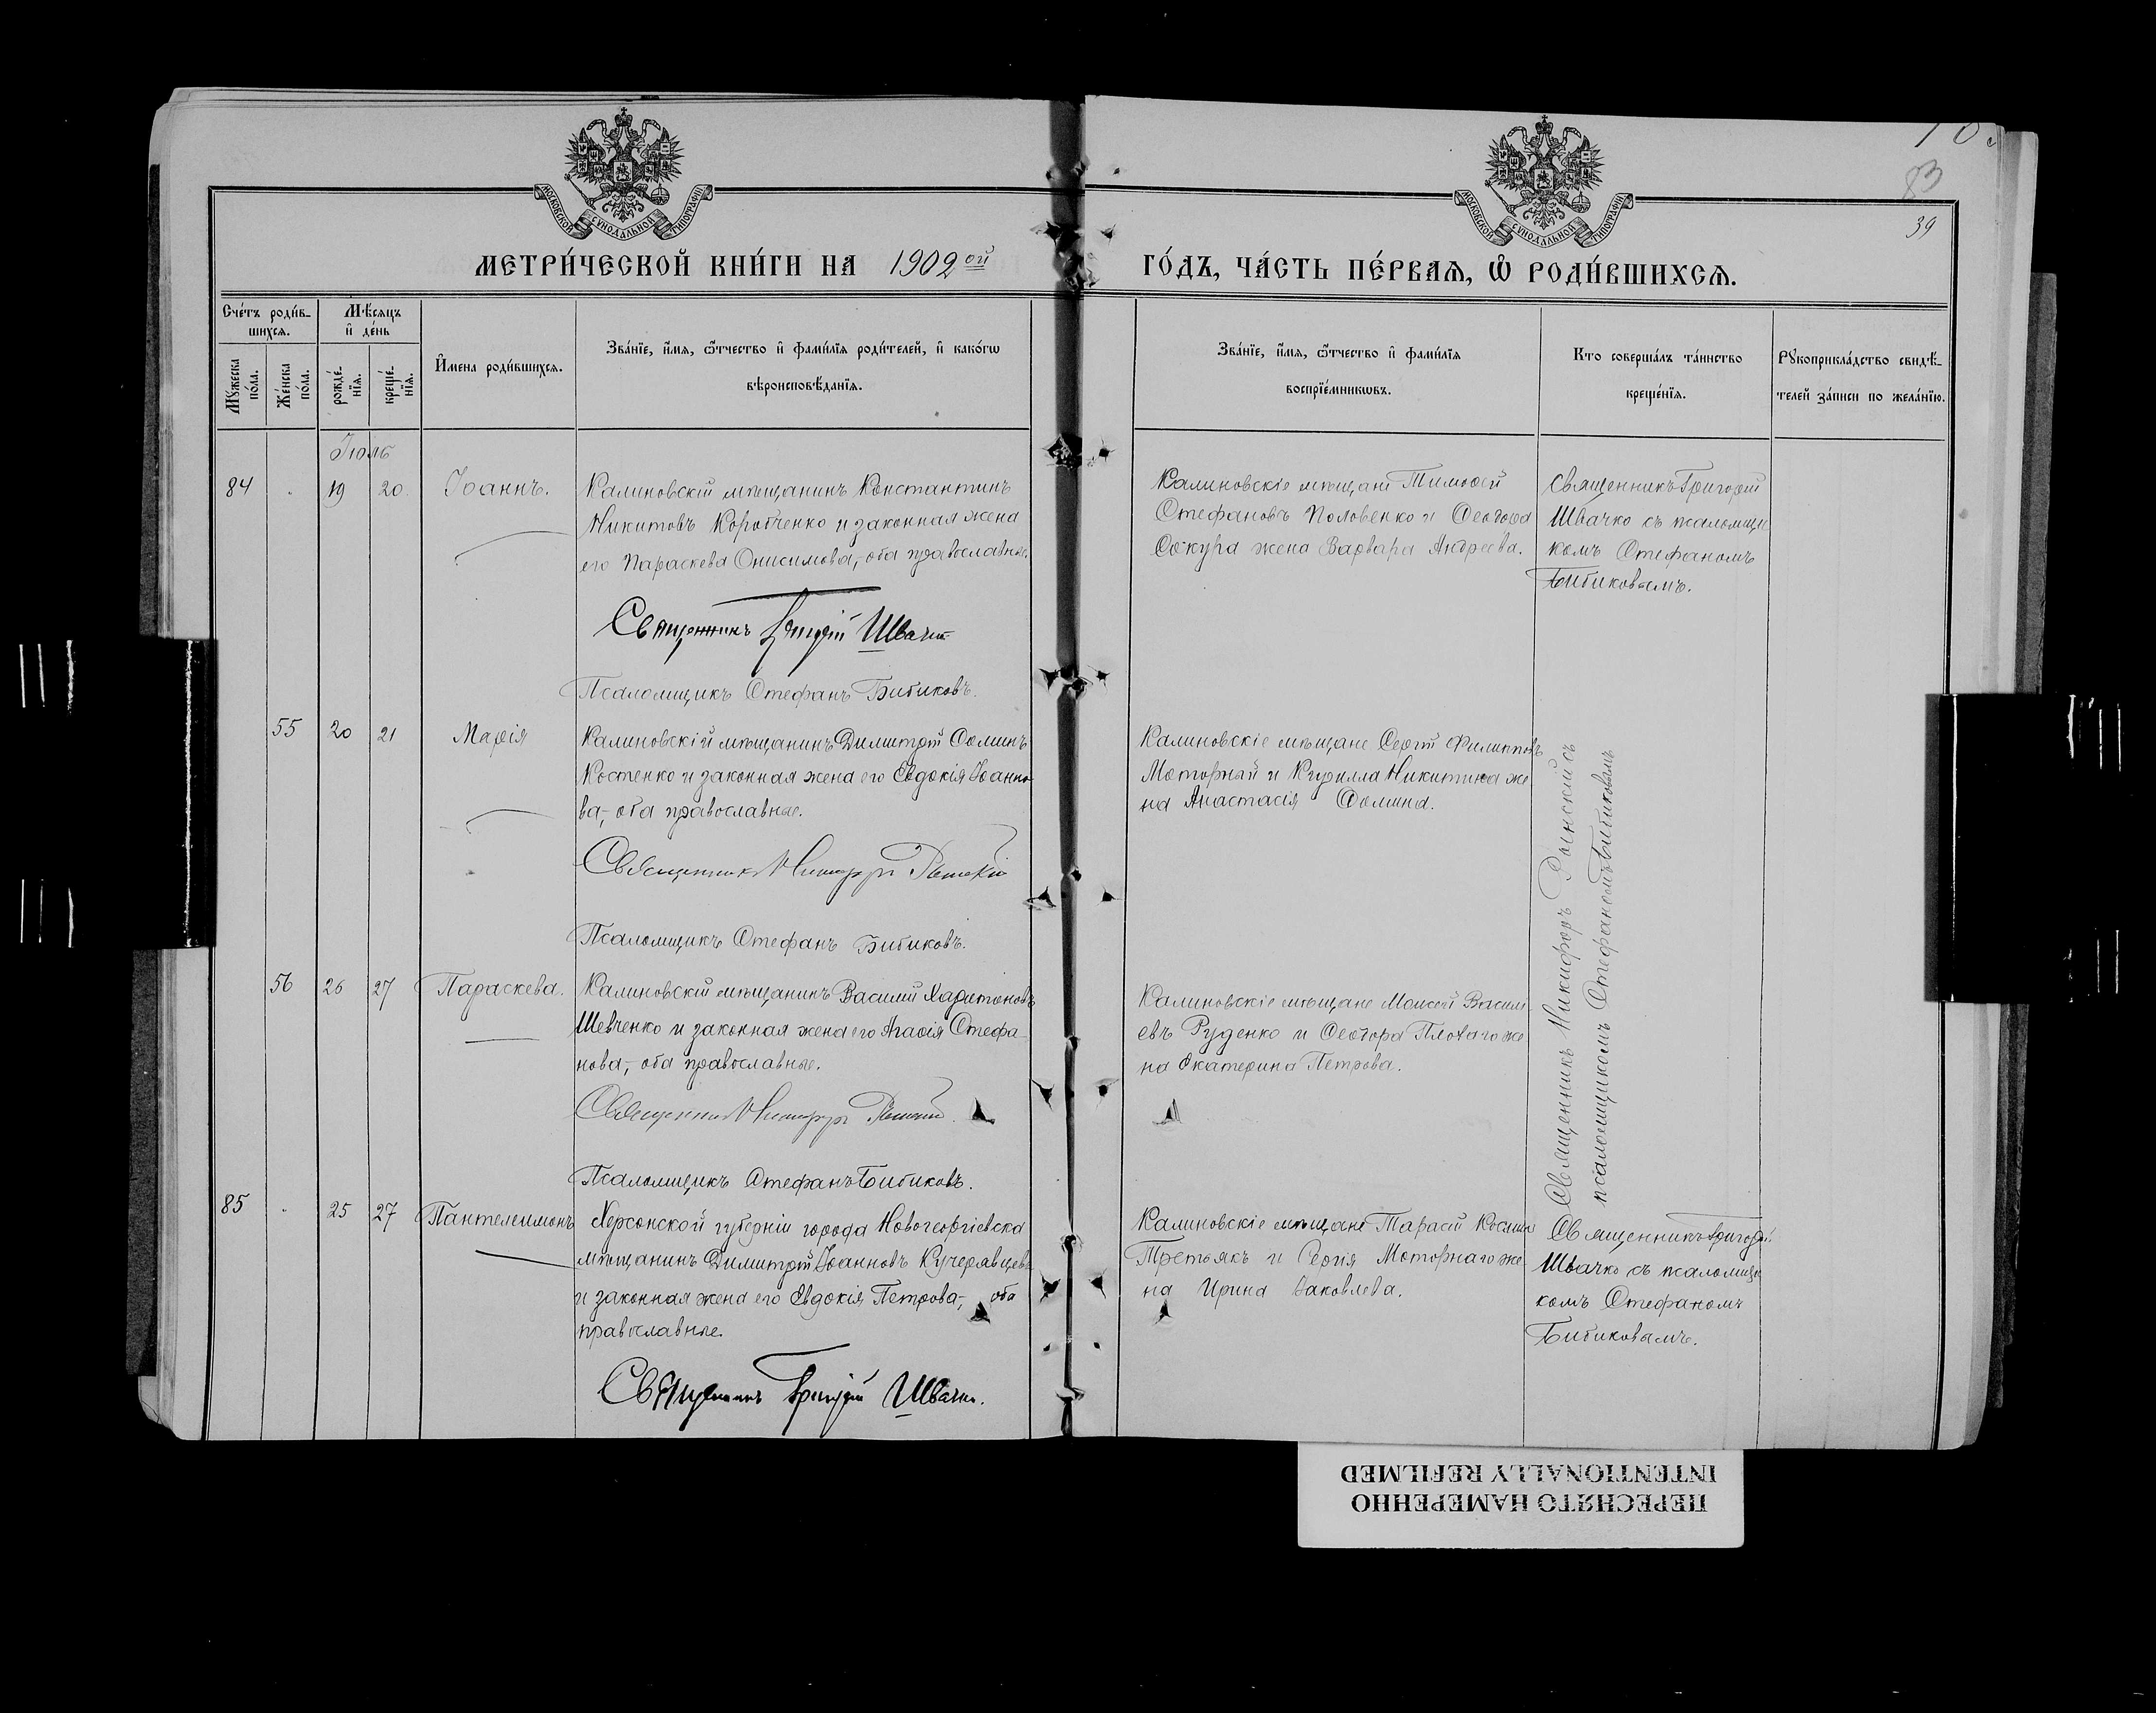 МОСКОВСКОЙ СѴНОДАЛЬНОЙ ТИПОГРАФІИ
МОСКОВСКОЙ СѴНОДАЛЬНОЙ ТИПОГРАФІИ
83
39
МЕТРИ́ЧЕСКОЙ КНИ́ГИ НА 1902 ой
ГО́ДЪ, ЧА́СТЬ ПЕ́РВАЯ, Ѽ РОДИ́ВШИХСЯ.
Сче́тъ роди́в-
шихся.
Мѣ́сяцъ
и҆ де́нь
Мꙋ́жеска
по́ла.
Же́нска
по́ла.
рожде́-
нїя.
креще́-
нїя.
И҆́мена роди́вшихся.
Зва́нїе, и҆́мя, ѻ҆́тчество и҆ фамы́лїя роди́телей, и҆ како́гѡ
вѣроисповѣ́данїя.
Зва́нїе, и҆́мя, ѻ҆́тчество и҆ фами́лїя
воспрїе́мникѡвъ.
Кто соверша́лъ та́инство
креще́нїя.
Рꙋкоприкла́дство свидѣ́-
телей за́писи по жела́нїю.
Іюль
84 19 20 Іоаннъ.
Калиновскій мѣщанинъ Константинъ
Никитовъ Коробченко и законная жена
его Параскева Онисимова,- оба православные.
Священникъ Григорій Швачко
Псаломщикъ Стефанъ Бибиковъ.
Калиновскіе мѣщане Тимоѳей
Стефановъ Половенко и Ѳеодора
Сокура жена Варвара Андреева.
Священникъ Григорій
Швачко съ псаломщи
комъ Стефаномъ
Бибиковымъ.
55 20 21 Марія
Калиновскій мѣщанинъ Димитрій Ѳоминъ
Костенко и законная жена его Евдокія Іоанно
ва,- оба православные.
Священникъ Никифоръ
Псаломщикъ Стефанъ Бибиковъ.
Калиновскіе мѣщане Сергій Филипповъ
Моторный и Кирилла Никитина же
на Анастасія Ѳомина.
Священникъ Никифоръ съ
псаломщикомъ Стефаномъ Бибиковымъ
56 26 27 Параскева.
Калиновскій мѣщанинъ Василій Харитоновъ
Шевченко и законная жена его Агаѳія Стефа
нова,- оба православные.
Священникъ Никифоръ
Псаломщикъ Стефанъ Бибиковъ.
Калиновскіе мѣщане Моисей Васили
евъ Руденко и Ѳеодора же
на Екатерина Петрова.
85 25 27 Пантелеимонъ
Херсонской губерніи города Новогеоргіевска
мѣщанинъ Димитрій Іоанновъ Кучерявцевъ
и законная жена его Евдокія Петрова,- оба
православные.
Священникъ Григорій Швачко.
Калиновскіе мѣщане Тарасій Косминъ
Третьякъ и Сергія Моторнаго же
на Ирина Іаковлева.
Священникъ Григорій
Швачко съ псаломщи
комъ Стефаномъ
Бибиковымъ.
ПЕРЕСНЯТО НАМЕРЕННО
INTENTIONALLY REFILMED